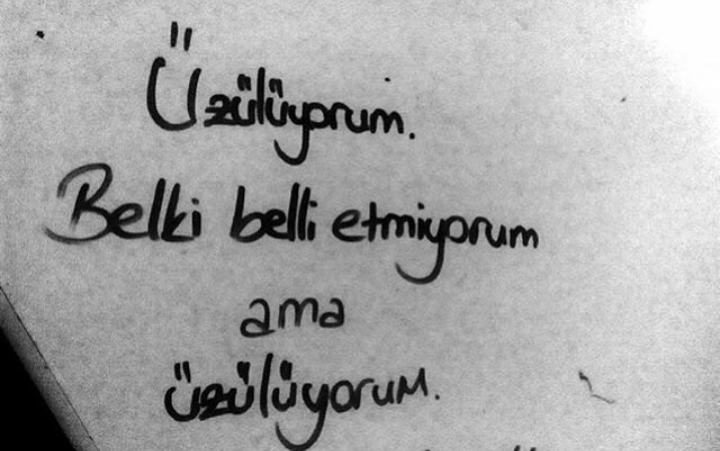 Üzülüyorum.
Belki belli etmiyorum
ama
üzülüyorum.